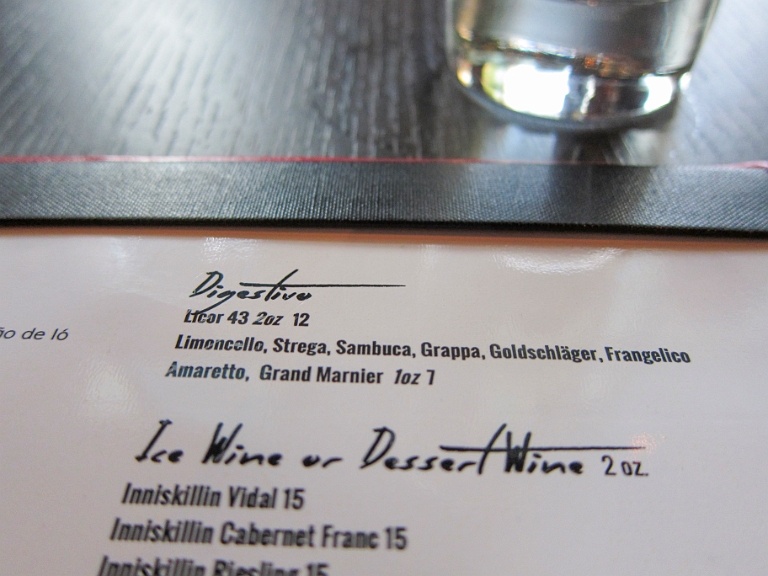 ão de ló
Digestivo
Licor 43 2oz 12
Limoncello, Strega, Sambuca, Grappa, Goldschläger, Frangelico
Amaretto, Grand Marnier 1oz 7
Ice Wine or Dessert Wine 2 oz.
Inniskillin Vidal 15
Inniskillin Cabernet Franc 15
Inniskillin Riesling 15